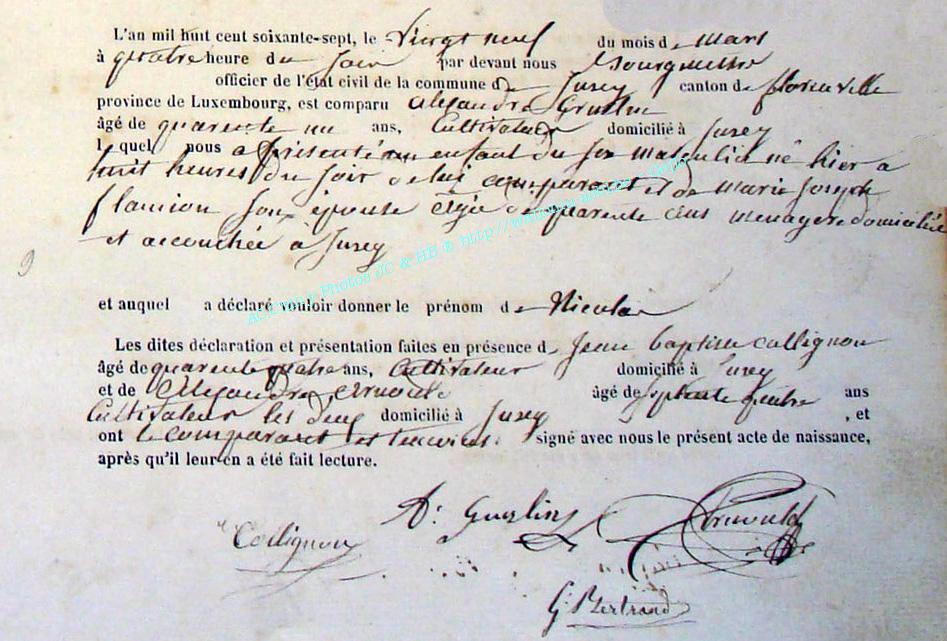 L'an mil huit cent soixante-sept, le vingt neuf du mois de mars
à quatre heure du soir par devant nous Bourgmestre
officier de l'état civil de la commune de Jusey canton de florenville
province de Luxembourg, est comparu alexandre
âgé de quarente un ans, Cultivateur domicilié à Jusey
lequel nous a présenté un enfant du sex masculin né hier à
huit heures du soir de lui comparant et de marie joseph
flamion son épouse âgée de quarente ans menagere domicilié
et accouchée à Jusey
9
et auquel a déclaré vouloir donner le prénom de Nicolas
Les dites déclaration et présentation faites en présence de jean baptiste collignon
âgé de quarente quatre ans, Cultivateur domicilié à Jusey
et de Alexandre arnould âgé de septante quatre ans
Cultivateur les deux domicilié à Jusey , et
ont le comparant et temoins signé avec nous le présent acte de naissance,
après qu'il leur en a été fait lecture.
A. Guerlin
Collignon
Arnould
G. Bertrand
Photos JC & HB © http://